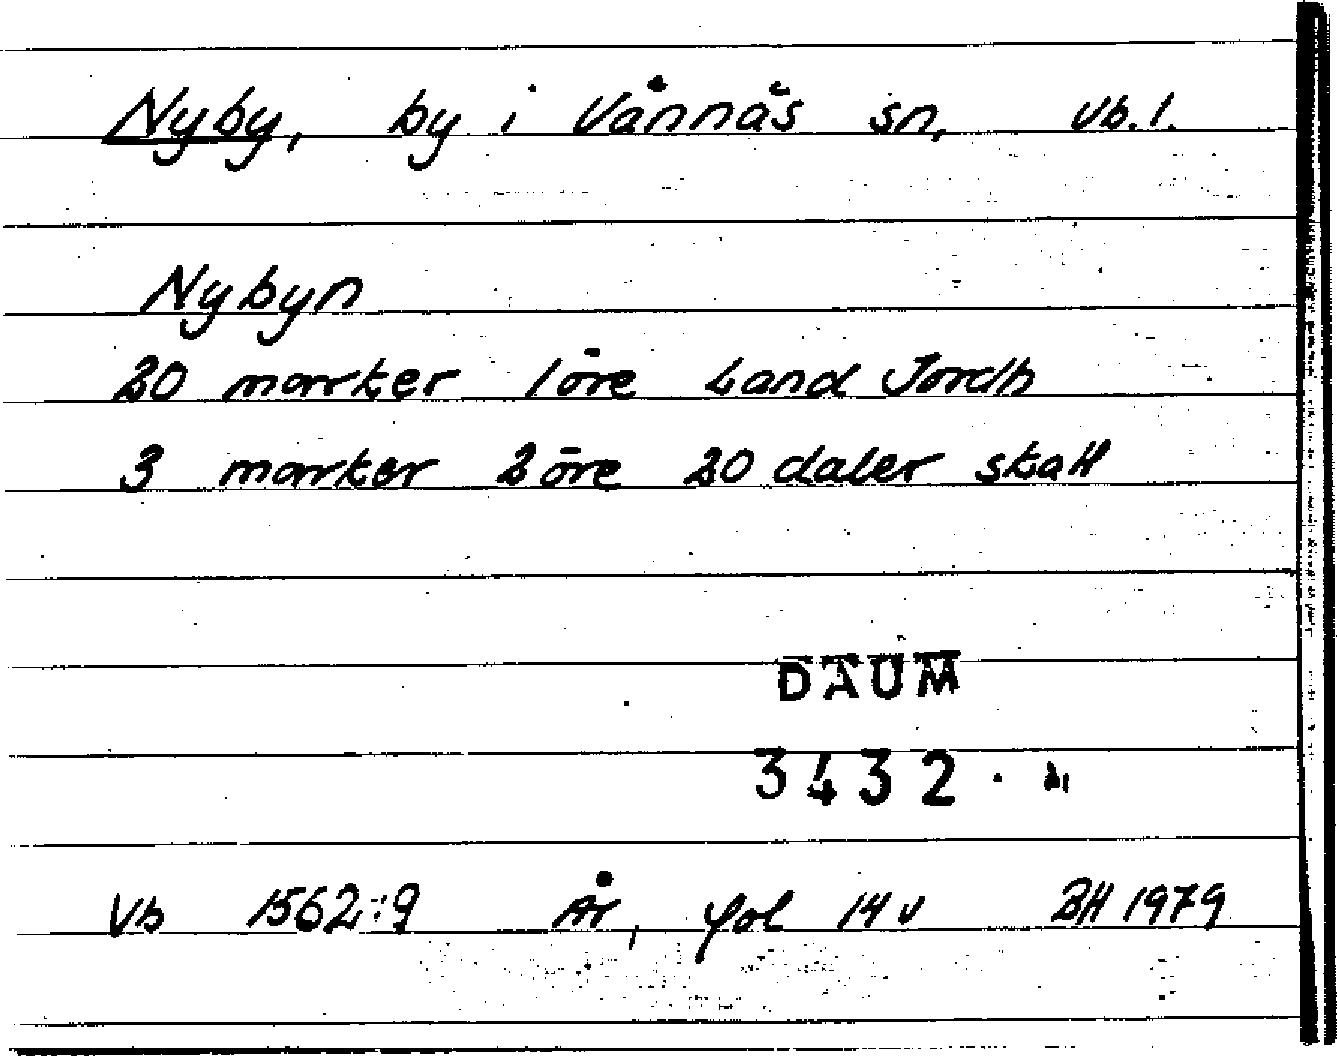 Nyby, by i Vännäs sn, Vb. l.
Nybyn
20 marker 1 öre Land Jordh
3 marker 2 öre 20 daler skatt
DAUM
3432
Vb 1562:9 År, fol 14 v BH 1979